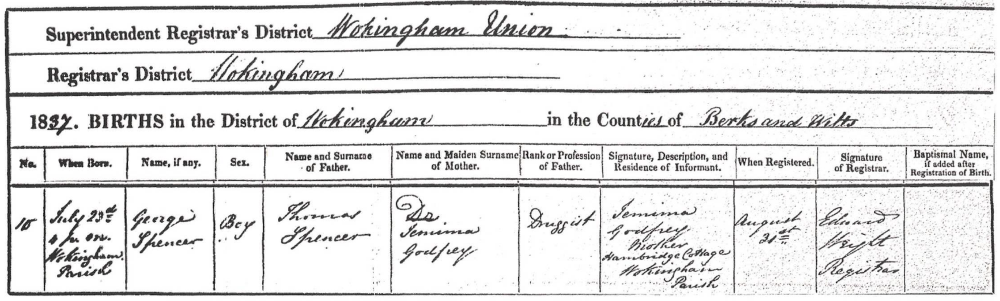 Superintendent Registrar's District Wokingham Union
Registrar's District Wokingham
1837. BIRTHS in the District of Wokingham in the Counties of Berks and Wilts
No.
When Born.
Name, if any.
Sex.
Name and Surname
of Father.
Name and Maiden Surname
of Mother.
Rank or Profession
of Father.
Signature, Description, and
Residence of Informant.
When Registered.
Signature
of Registrar.
Baptismal Name,
if added after
Registration of Birth.
July 23rd
Wokingham
Parish
George
Spencer
Boy
Thomas
Spencer
Jemima
Godfrey
Druggist
Jemima
Godfrey
Mother
Hambridge Cottage
Wokingham
Parish
August
31st
Edward
Wright
Registrar